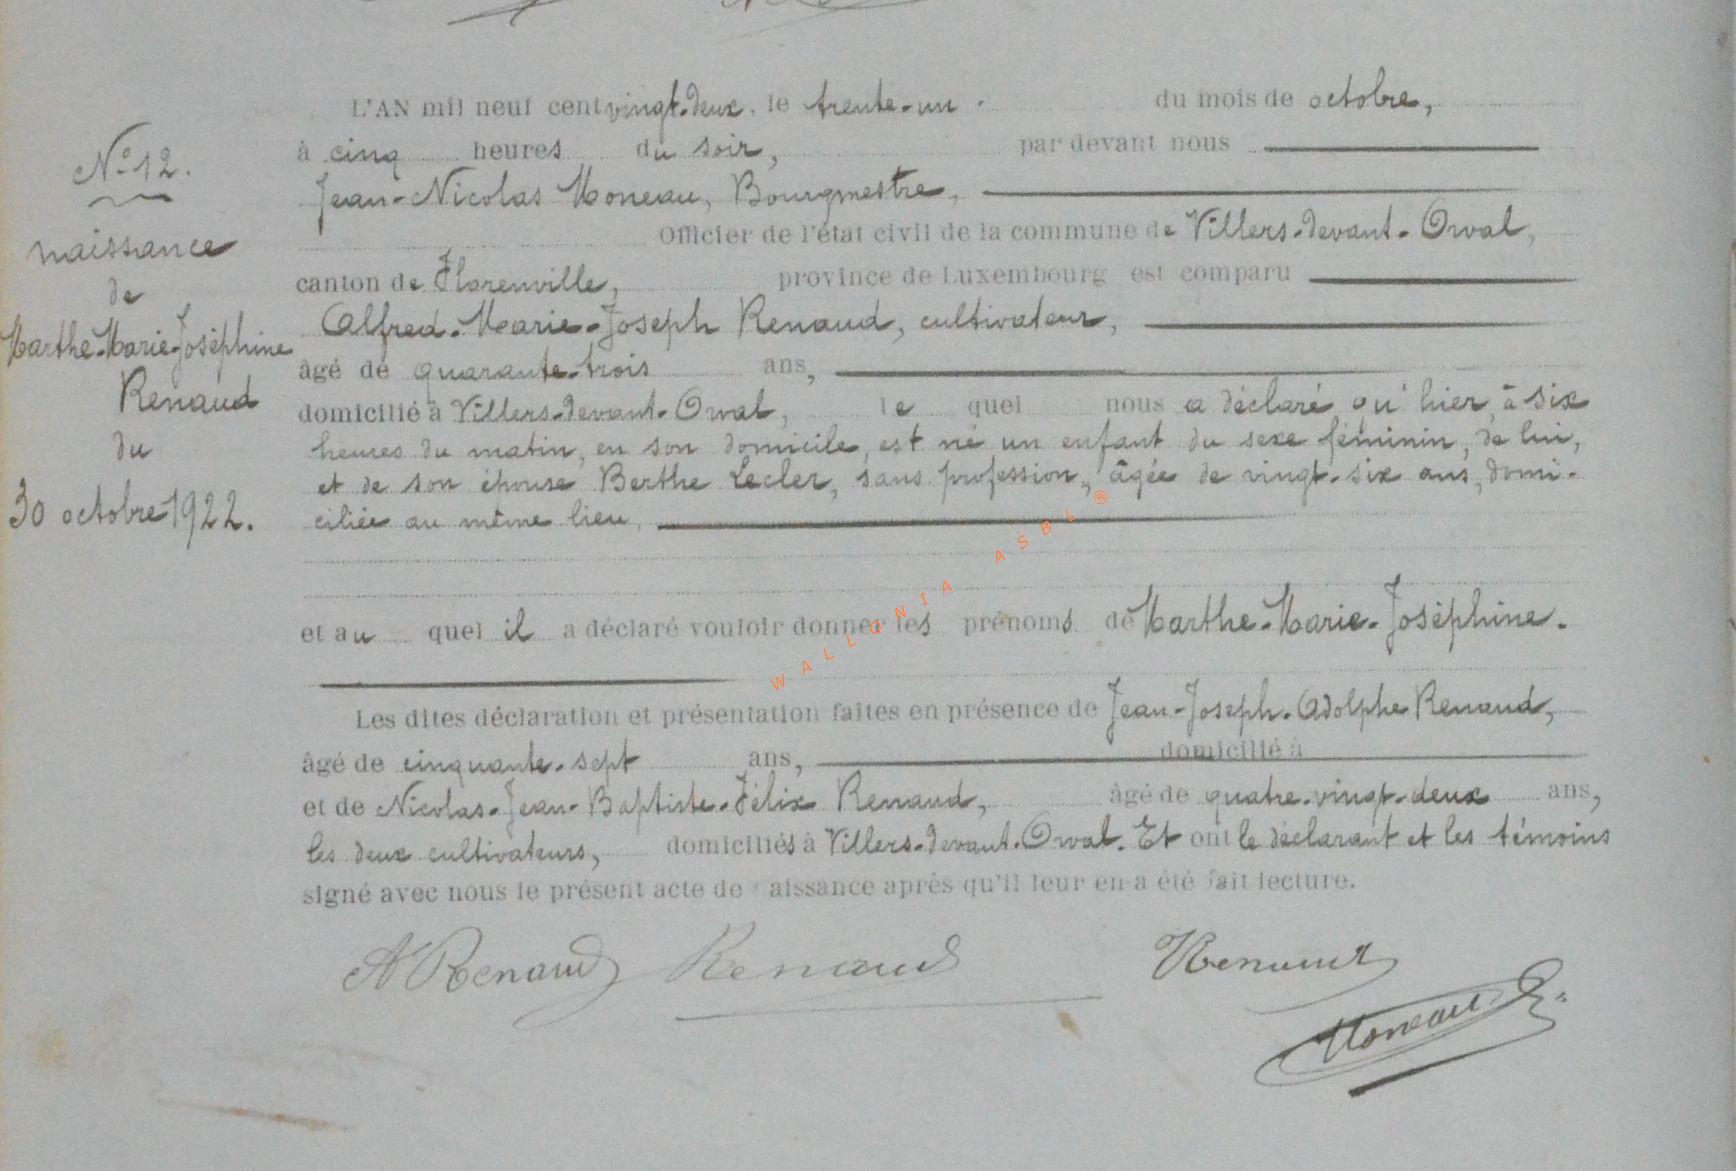 L'AN mil neuf cent vingt-deux, le trente-un du mois de octobre,
à cinq heures du soir, par devant nous
Jean-Nicolas Moneau, Bourgmestre,
Officier de l'état civil de la commune de Villers-devant-Orval,
canton de Florenville, province de Luxembourg est comparu
Alfred-Marie-Joseph Renaud, cultivateur,
âgé de quarante-trois ans,
domicilié à Villers-devant-Orval, le quel nous a déclaré qu'hier, à six
heures du matin, en son domicile, est né un enfant du sexe féminin, de lui,
et de son épouse Berthe Lecler, sans profession, âgée de vingt-six ans, domi-
ciliée au même lieu,
et au quel il a déclaré vouloir donner les prénoms de Marthe-Marie-Joséphine.
Les dites déclaration et présentation faites en présence de Jean-Joseph-Adolphe Renaud,
âgé de cinquante-sept ans, domicilié à
et de Nicolas-Jean-Baptiste-Félix Renaud, âgé de quatre-vingt-deux ans,
les deux cultivateurs, domiciliés à Villers-devant-Orval. Et ont le déclarant et les témoins
signé avec nous le présent acte de naissance après qu'il leur en a été fait lecture.
N° 12.
naissance
de
Marthe-Marie-Joséphine
Renaud
du
30 octobre 1922.
A Renaud Renaud Renaud
Moneau
WALLONIA ASBL ®